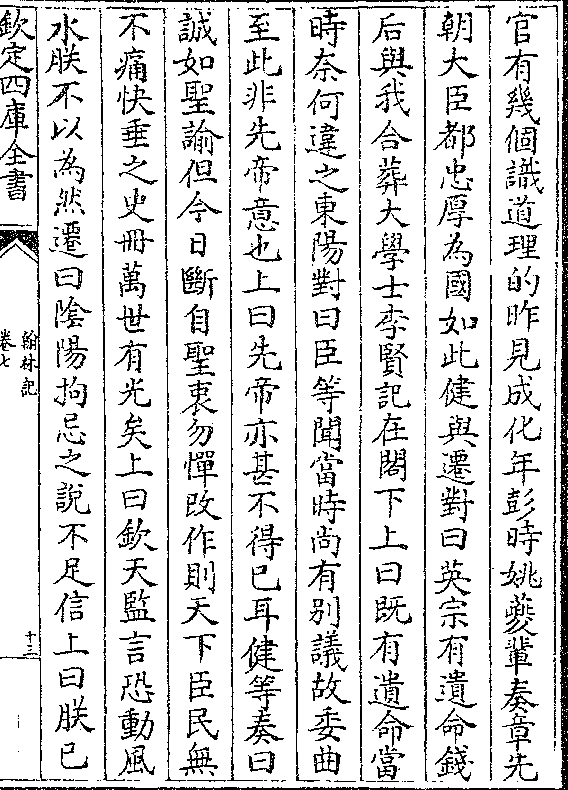 官有幾個識道理的昨見成化年彭時姚夔軰奏章先
朝大臣都忠厚為國如此健與遷對曰英宗有遺命錢
后與我合葬大學士李賢記在閣下上曰既有遺命當
時奈何違之東陽對曰臣等聞當時尚有别議故委曲
至此非先帝意也上曰先帝亦甚不得已耳健等奏曰
誠如聖諭但今日斷自聖衷勿憚改作則天下臣民無
不痛快垂之史冊萬世有光矣上曰欽天監言恐動風
水朕不以為然遷曰陰陽拘忌之說不足信上曰朕已
欽定四庫全書
翰林記
卷七
十三